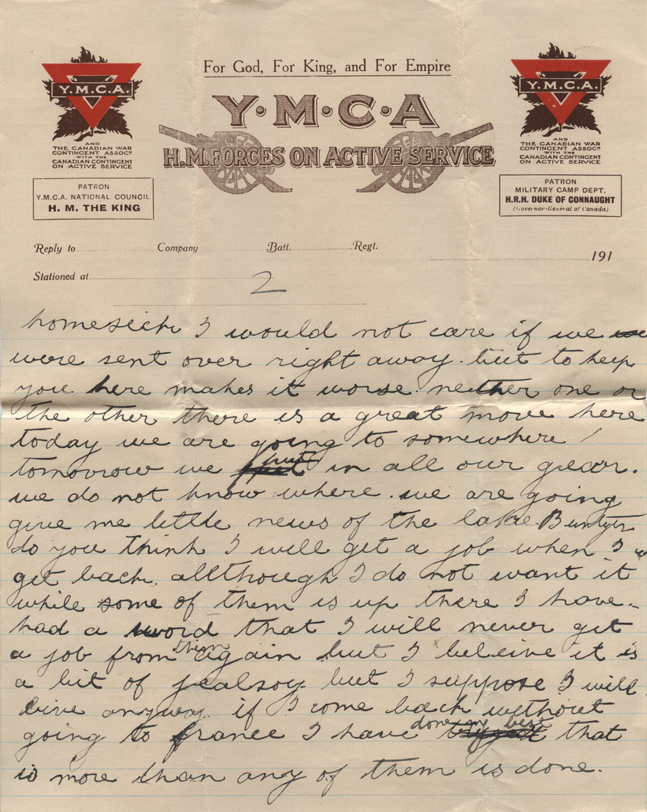 For God, For King, and For Empire
Y·M·C·A
H.M. FORCES ON ACTIVE SERVICE
Y.M.C.A.
AND
THE CANADIAN WAR
CONTINGENT ASSOCN
WITH THE
CANADIAN CONTINGENT
ON ACTIVE SERVICE
PATRON
Y.M.C.A. NATIONAL COUNCIL
H. M. THE KING
Y.M.C.A.
AND
THE CANADIAN WAR
CONTINGENT ASSOCN
WITH THE
CANADIAN CONTINGENT
ON ACTIVE SERVICE
PATRON
MILITARY CAMP DEPT.
H.R.H. DUKE OF CONNAUGHT
(Governor-General of Canada)
Reply to Company Batt. Regt. 191
Stationed at
2
homesick I would not care if we
were sent over right away. but to keep
you here makes it worse. neither one or
the other there is a great move here
today we are going to somewhere
tomorrow we put in all our gear.
we do not know where. we are going
give me little news of the lake
do you think I will get a job when I
get back. allthough I do not want it
while some of them is up there I have
had a word that I will never get
a job from them again but I beleive it is
a bit of jealsoy but I suppose I will
live anyway. if I come back without
going to france I have done my best that
is more than any of them is done.